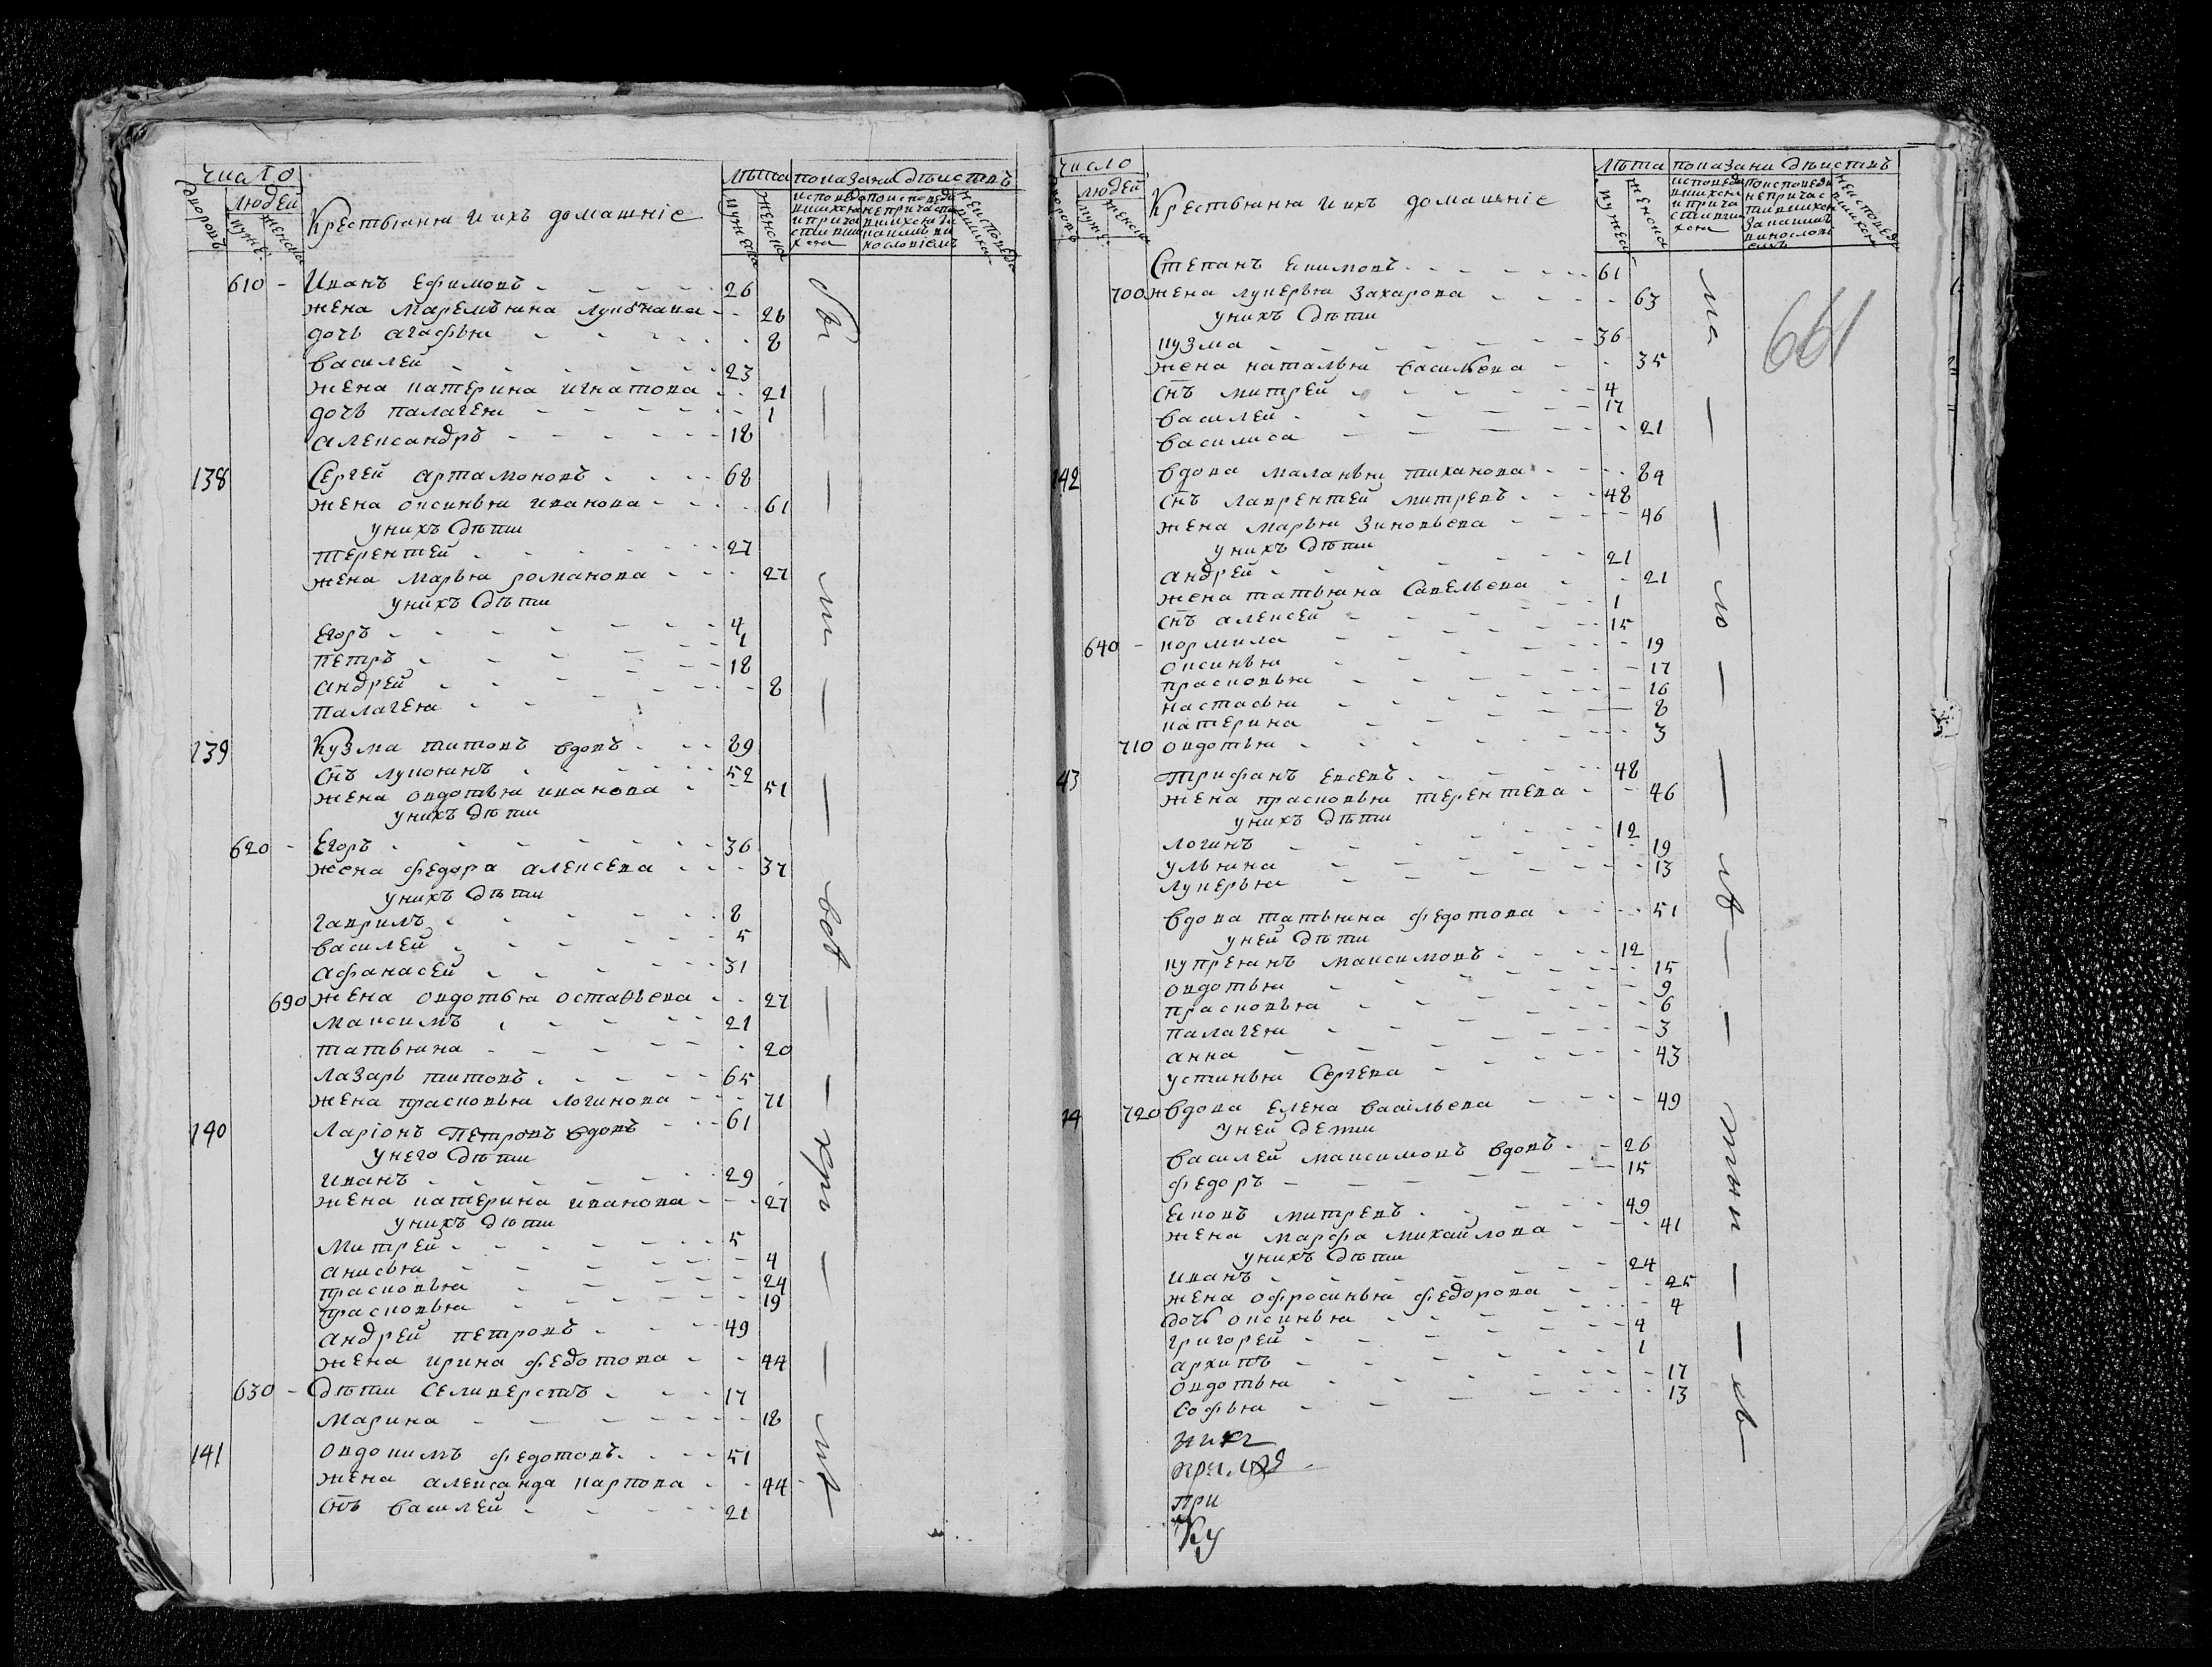 число
людей
дворовъ
муже
женска
Крестьяня и ихъ домашніе
лѣта
мужеска
женска
показани дѣиствъ
610 - Иванъ Ефимовъ - 26
жена Маремьяна Лукьянава - 26
дочь агафья - 8
василей - 23
жена катерина игнатова - 21
дочь палагея - 1
александръ - 18
138 Сергей артамоновъ - 68
жена оксинья иванова - 61
у нихъ дѣти
терентей - 27
жена марья романова - 27
у нихъ дѣти
егоръ - 4
петръ - 1
андрей - 18
палагея - 8
139 Кузма титовъ вдовъ - 89
снъ лукоянъ - 52
жена овдотья иванова - 51
у нихъ дѣти
620 - Егоръ - 36
жена федора алексева - 37
у нихъ дѣти
гаврилъ - 8
василей - 5
афанасей - 31
690 жена овдотья остафьева - 27
максимъ - 21
татьяна - 20
лазарь титовъ - 65
жена прасковья логинова - 71
140 Ларіонъ Петровъ вдовъ - 61
у него дѣти
иванъ - 29
жена катерина иванова - 27
у нихъ дѣти
митрей - 5
анисья - 4
прасковья - 24
прасковья - 19
андрей петровъ - 49
жена ирина федотова - 44
630 - дѣти селиверстъ - 17
марина - 18
141 овдокимъ федотовъ - 51
жена александа карпова - 44
снъ василей - 21
число
людей
дворовъ
муже
женска
Крестьяня и ихъ домашніе
лѣта
мужеска
женска
показани дѣиствъ
661
Степанъ екимовъ - 61
700 жена лукерья захарова - 63
у нихъ дѣти
кузма - 36
жена наталья васильева - 35
снъ митрей - 4
василей - 17
василиса - 21
142 вдова маланья тиханова - 84
снъ лаврентей митревъ - 48
жена марья зиновьева - 46
у нихъ дѣти
андрей - 21
жена татьяна савельева - 21
снъ алексей - 1
640 - кормила - 15
оксинья - 19
прасковья - 17
настасья - 16
катерина - 8
710 овдотья - 3
43 Трифанъ евсевъ - 48
жена прасковья терентева - 46
у нихъ дѣти
логинъ - 12
ульяна - 19
лукерья - 13
вдова татьяна федотова - 51
у ней дѣти
купреянъ максимовъ - 12
овдотья - 15
прасковья - 9
палагея - 6
анна - 3
устинья Сергева - 43
44 720 вдова елена васильева - 49
у ней дети
василей максимовъ вдовъ - 26
федоръ - 15
ековъ митревъ - 49
жена марфа михайлова - 41
у нихъ дѣти
иванъ - 24
жена офросинья федорова - 25
дочь оксинья - 4
григорей - 4
архипъ - 1
овдотья - 17
софья - 13
при
Ку